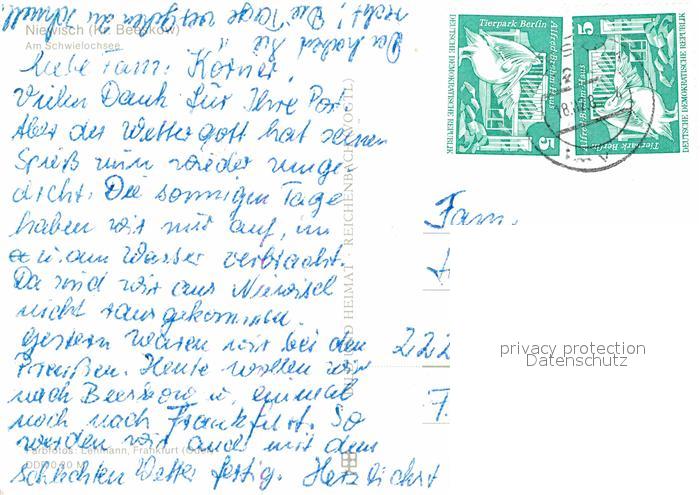 Niewisch (Kr. Beeskow)
Am Schwielochsee
Da haben Sie
recht! Die Tage vergehen zu schnell
Liebe Fam. Körner!
Vielen Dank für Ihre
Aber der Wettergott hat seinen
Spieß nun wieder umge
dreht. Die sonnigen Tage
haben wir nur auf, im
u. am Wasser verbracht.
Da sind wir aus Niewisch
nicht rausgekommen.
Gestern waren wir bei den
Preußen. Heute wollen wir
nach Beeskow u. einmal
noch nach Frankfurt. So
werden wir auch mit dem
schlechten Wetter fertig. Herzlichst
Farbfotos: Lehmann, Frankfurt (Oder)
HEIMAT REICHENBACH (VOGTL)
Fam.
222
7
DEUTSCHE DEMOKRATISCHE REPUBLIK
Tierpark Berlin
Alfred-Brehm-Haus
5
5
Alfred-Brehm-Haus
Tierpark Berlin
DEUTSCHE DEMOKRATISCHE REPUBLIK
privacy protection
Datenschutz